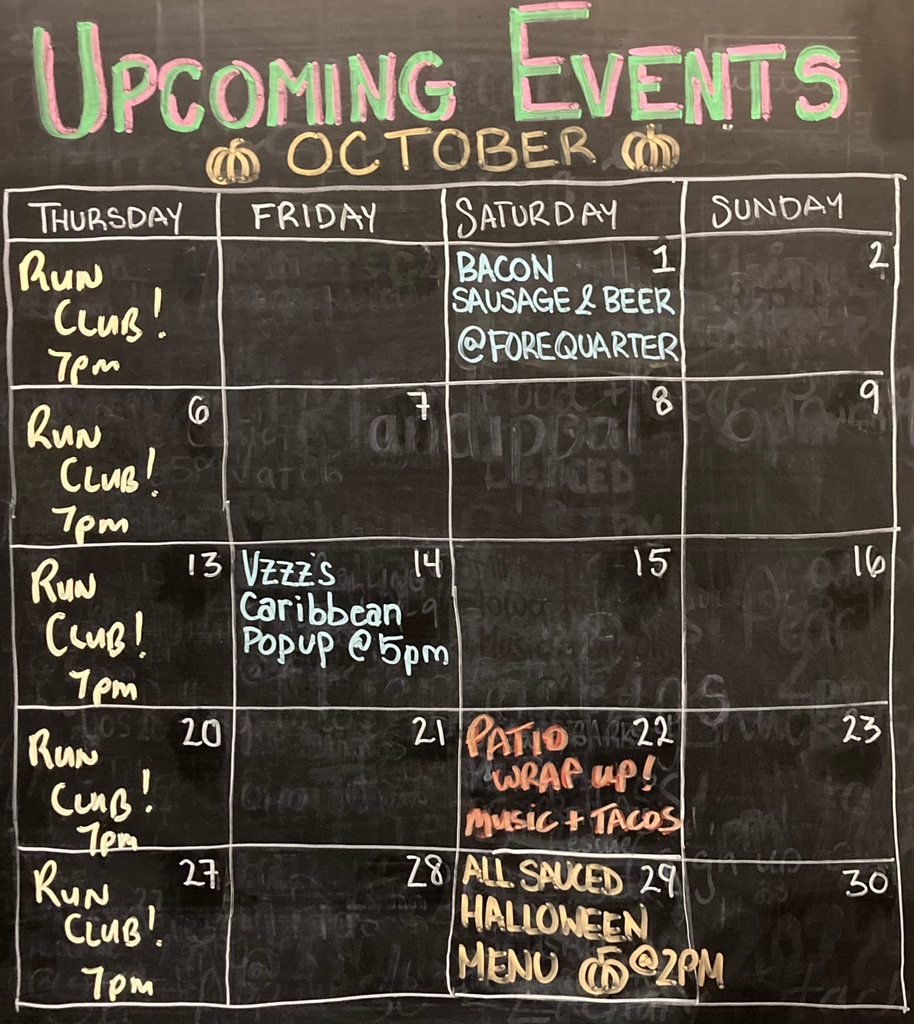 UPCOMING EVENTS
OCTOBER
THURSDAY FRIDAY SATURDAY SUNDAY
RUN
CLUB!
7pm
BACON 1
SAUSAGE & BEER
@FOREQUARTER
2
RUN 6
CLUB!
7pm
7
8
9
RUN 13
CLUB!
7pm
VZZZ'S 14
Caribbean
POPUP @ 5pm
15
16
RUN 20
CLUB!
7pm
21
PATIO 22
WRAP UP!
MUSIC + TACOS
23
RUN 27
CLUB!
7pm
28
ALL SAUCED 29
HALLOWEEN
MENU @2PM
30